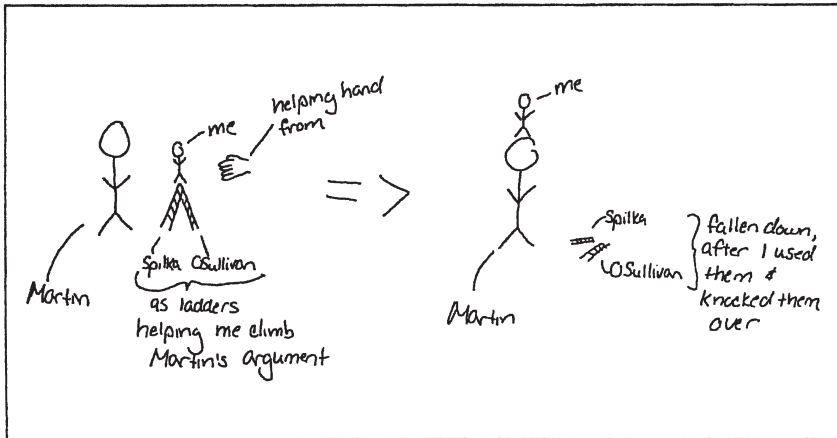 me
helping hand
from
Spilka OSullivan
Martin
as ladders
helping me climb
Martin's argument
=>
me
Spilka
OSullivan
fallen down,
after I used
them &
knocked them
over
Martin